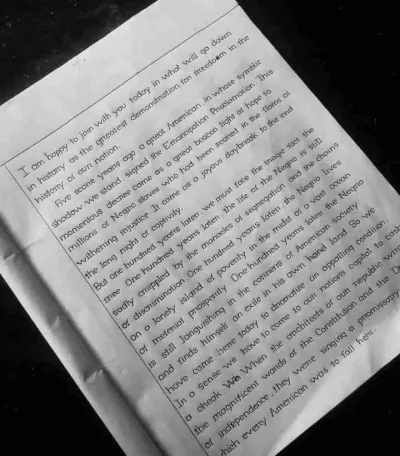 I am happy to join with you today in what will go down
in history as the greatest demonstration for freedom in the
history of our nation.
Five score years ago a great American in whose symbolic
shadow we stand signed the Emancipation Proclamation. This
momentous decree come as a great beacon light of hope to
millions of Negro slaves who had been seared in the flams of
withering injustice. It came as a joyous daybreak to the end
the long night of captivity.
But one hundred years later, we must face the tragic fact the
free. One hundred years later, the life of the Negro is still
sadly crippled by the manacles of segregation and the chains
of discrimination. One hundred years later, the Negro lives
on a lonely island of poverty in the midst of a vast ocean
of material prosperity. One hundred years later, the Negro
is still languishing in the corners of American society
and finds himself an exile in his own land. So we
have come here today to dramatize an appalling condition.
In a sense we have come to our nation's capital to cash
a check. When the architects of our republic wrote
the magnificent words of the Constitution and the De
of independence, they were signing a promissory
which every American was to fall heir.